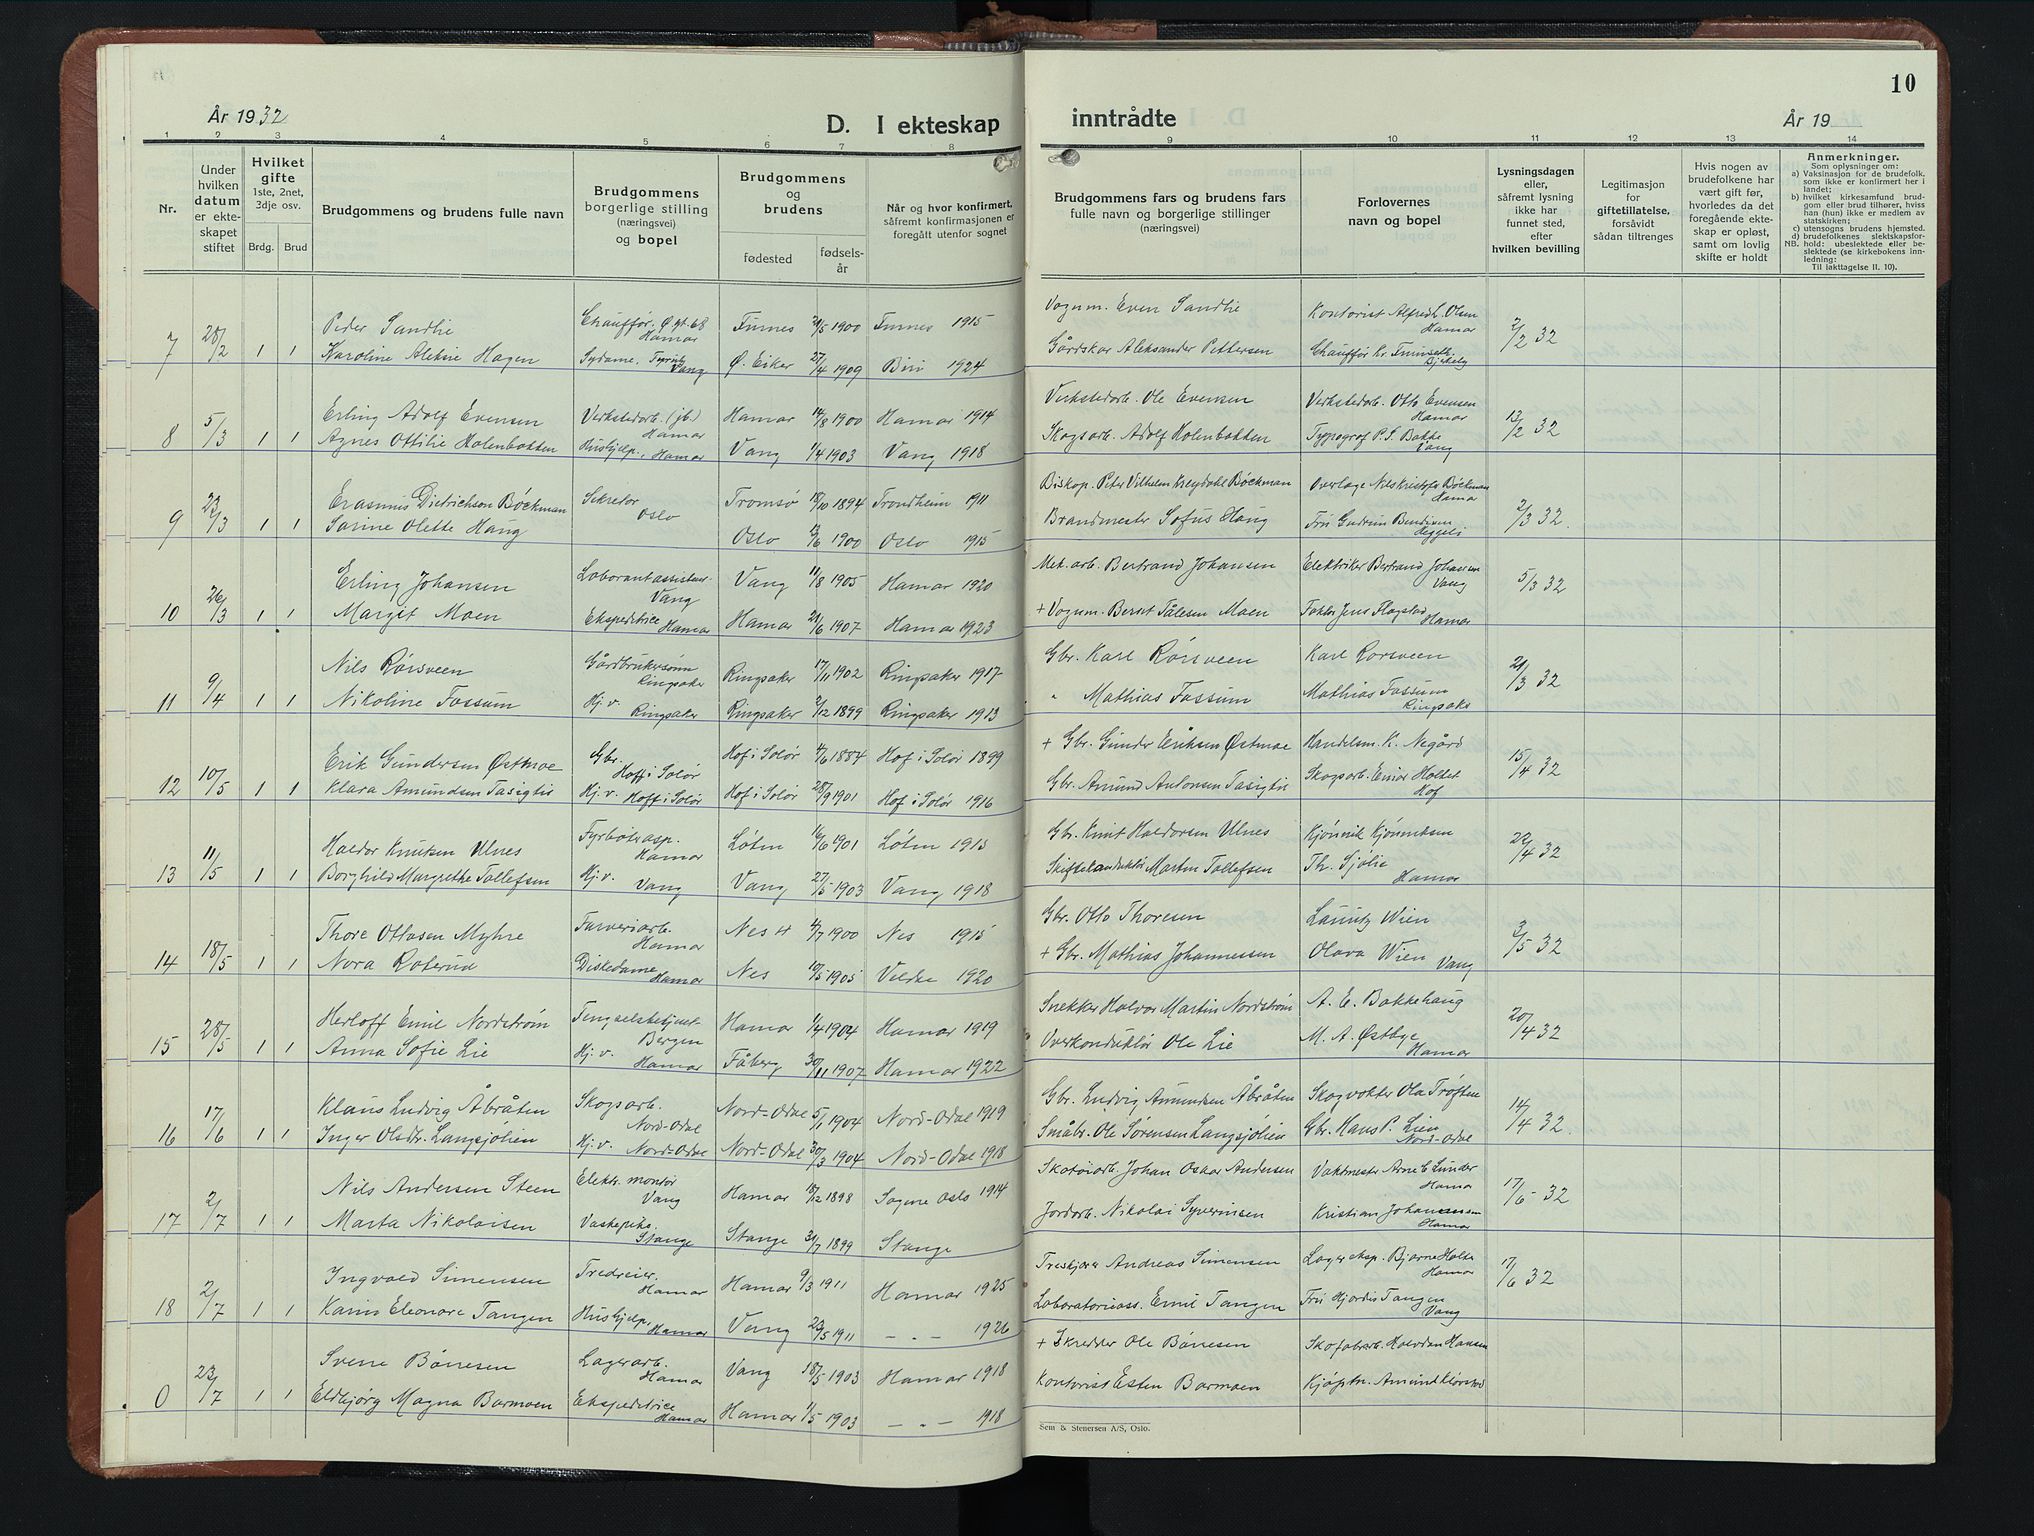 10
År 1932
D. I ekteskap
inntrådte
År 19
1 2 3 4 5 6 7 8 9 10 11 12 13 14
Nr.
Under hvilken datum er ekteskapet stiftet
Hvilket gifte
1ste, 2net, 3dje osv.
Brdg. Brud
Brudgommens og brudens fulle navn
Brudgommens borgerlige stilling (næringsvei) og bopel
Brudgommens og brudens
fødested
fødselsår
Når og hvor konfirmert, såfremt konfirmasjonen er foregått utenfor sognet
Brudgommens fars og brudens fars fulle navn og borgerlige stillinger (næringsvei)
Forlovernes navn og bopel
Lysningsdagen eller, såfremt lysning ikke har funnet sted, efter hvilken bevilling
Legitimasjon for giftetillatelse, forsåvidt sådan tiltrenges
Hvis nogen av brudefolkene har vært gift før, hvorledes da det foregående ekteskap er opløst, samt om lovlig skifte er holdt
Anmerkninger.
Som oplysninger om:
a) Vaksinasjon for de brudefolk, som ikke er konfirmert her i landet;
b) hvilket kirkesamfund brudgom eller brud tilhører, hviss han (hun) ikke er medlem av statskirken;
c) utensogns brudens hjemsted.
d) brudefolkenes slektskapsforhold: ubeslektede eller beslektede (se kirkebokens innledning:
NB. Til Iakttagelse II. 10).
7 28/2 1 1
Peder Sandlie Chauffør. Ø gt. 68 Hamar Furnes 21/5 1900 Furnes 1915 Vognm. Even Sandlie Kontorist Alfred L. Olsen Hamar 2/2 32
Karoline Aleksie Hagen Sydame. Vang Ø. Eiker 27/4 1909 Biri 1924 Gårdskar Aleksander Pettersen Chauffør Kr. Furuseth
8 5/3 1 1
Erling Adolf Evensen Verkstedarb. (jb.) Hamar Hamar 14/8 1900 Hamar 1914 Verkstedarb. Ole Evensen Verkstedarb. Otto Evensen Hamar 13/2 32
Agnes Ottilie Holenbakken Hushjelp., Hamar Vang 1/4 1903 Vang 1918 Skogsarb. Adolf Holenbakken Typograf P. S. Bakke Vang
9 23/3 1 1
Erasmus Dietrichson Bøckman Sekretær Oslo Tromsø 18/10 1894 Trondheim 1911 Biskop. Peter Vilhelm Kreydahl Bøckman Overlæge Nils Kristofer Bøckman Hamar 2/3 32.
Sarine Olette Haug Oslo 12/6 1900 Oslo 1915 Brandmester Sofus Haug Frk Gudrun Bendixen Heggeli
10 26/3 1 1
Erling Johansen Laborantassistent Vang Vang 11/8 1905 Hamar 1920 Mek. arb. Bertrand Johansen Elektriker Bertrand Johansen Vang 5/3 32
Margit Moen Ekspeditrice Hamar Hamar 21/6 1907 Hamar 1923 + Vognm. Bernt Pålesen Moen Faktor Jens Flagstad Hamar
11 9/4 1 1
Nils Rørsveen Gårdbrukersønn Ringsaker Ringsaker 17/11 1902 Ringsaker 1917 Gbr. Karl Rørsveen Karl Rørsveen 21/3 32
Nikoline Fossum Hj. v. Ringsaker Ringsaker 2/12 1899 Ringsaker 1913 " Mathias Fossum Mathias Fossum Ringsaker
12 10/5 1 1
Erik Gundersen Østmoe Gbr. Hoff i Solør Hof i Solør 4/6 1884 Hof i Solør 1899 + Gbr. Gunder Eriksen Østmoe Handelsm. K. Negård 15/4 32
Klara Amundsen Tasigtic Hj. v. Hoff i Solør Hof i Solør 28/9 1901 Hof i Solør 1916 Gbr. Amund Antonsen Tasigtic Skogsarb. Einar Holtet Hof
13 11/5 1 1
Haldor Knutsen Ulnes Fyrbøterasp. Hamar Løten 16/6 1901 Løten 1915 Gbr. Knut Haldorsen Ulnes Kjønnik Kjønniksen 22/4 32
Borghild Margrethe Tollefsen Hj. v. Vang Vang 27/5 1903 Vang 1918 Skiftekonduktør Martin Tollefsen Th. Sjølie Hamar
14 18/5 1 1
Thore Ottosen Myhre Farveriarb. Hamar Nes H 4/7 1900 Nes 1915 Gbr. Otto Thoresen Lauritz Wien 3/5 32
Nora Roterud Diskedame Hamar Nes 10/5 1905 Veldre 1920 + Gbr. Mathias Johannessen Olava Wien Vang
15 28/5 1 1
Herloff Emil Nordstrøm Fengselsbetjent Bergen Hamar 1/4 1904 Hamar 1919 Snekker Halvor Martin Nordstrøm A. E. Bakkehaug 20/4 32
Anna Sofie Lie Hj. v. Hamar Fåberg 30/11 1907 Hamar 1922 Overkonduktør Ole Lie M. A. Østbye Hamar
16 17/6 1 1
Klaus Ludvig Åbråten Skogsarb. Nord-Odal Nord-Odal 5/1 1904 Nord-Odal 1919 Gbr. Ludvig Amundsen Åbråten Skogvokter Ola Trøften 14/4 32.
Inger Olsdr. Langsjølien Hj. v. Nord-Odal Nord-Odal 30/3 1904 Nord-Odal 1918 Småbr. Ole Sørensen Langsjølien Gbr. Hans P. Lien Nord-Odal
17 2/7 1 1
Nils Andersen Steen Elektr. montør Vang Hamar 18/12 1898 Sagene Oslo 1914 Skotøiarb. Johan Oskar Andersen Vaktmester Arne C Lunder Hamar 17/6 - 32
Marta Nikolaisen Vaskepike. Stange Stange 31/7 1899 Stange Jordarb. Nikolai Syverinsen Kristian Johansen Hamar
18 2/7 1 1
Ingvald Simensen Tredreier. Hamar Hamar 9/3 1911 Hamar 1925 Treskjærer Andreas Simensen Lagereksp. Bjarne Holte Hamar 17/6 32
Karin Eleonore Tangen Hushjelp. Hamar Vang 23/5 1911 - " - 1926 Laboratorieass. Emil Tangen Frk Hjordis Tangen Vang
0 23/7 1 1
Svene Bønesen Lagerarb. Hamar Vang 18/5 1903 Hamar 1918 + Skredder Ole Bønesen Skofabarb. Halvdan Hansen
Eldbjørg Magna Barmoen Ekspeditrice Hamar Hamar 1/5 1903 - " - 1918 Kontorist Esten Barmoen Kjøpm. Amund Kiørstad
Sem & Stenersen A/S, Oslo.